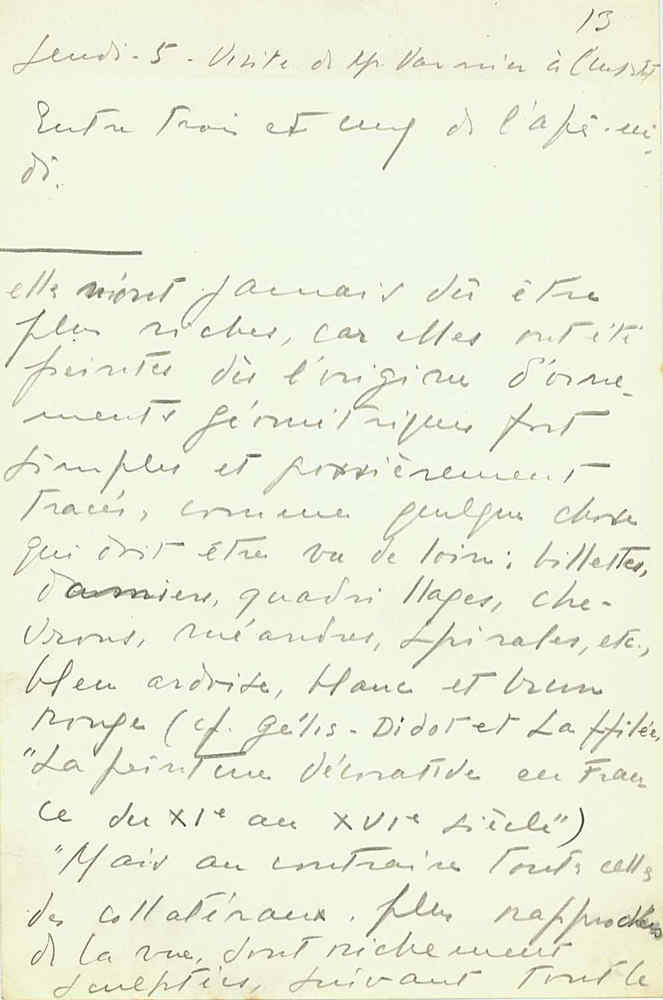 13
Jeudi - 5 - Visite de Mr Vannier à l'Instit
Entre trois et cinq de l'après-mi-
di.
elles n'ont jamais dû être
plus riches, car elles ont été
peintes dès l'origine d'orne-
ments géométriques fort
simples et grossièrement
tracés, comme quelque chose
qui doit être vu de loin: billettes,
damiers, quadrillages, che-
vrons, méandres, spirales, etc.,
bleu ardoise, blanc et brun
rouge (cf. Gélis-Didot et Laffilée,
"La peinture décorative en Fran-
ce du XIe au XVIe siècle")
"Mais au contraire toutes celles
des collatéraux, plus rapprochées
de la vue, sont richement
sculptées, suivant tout le